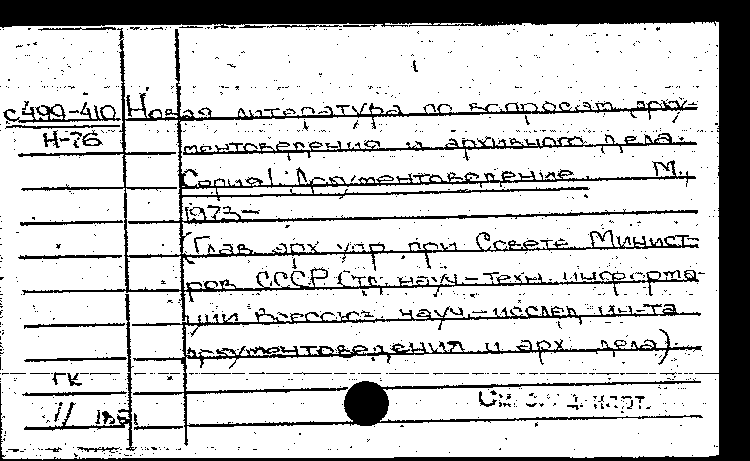 с499-410 Новая литература по вопросам доку-
Н-76 ментоведения и архивного дела.
Серия I. Документоведение. М.,
1973-
(Глав. арх. упр. при Совете Минист-
ров СССР. Отд. науч.-техн. информа-
ции Всесоюз. науч.-исслед. ин-та
документоведения и арх. дела).
ГК
См.